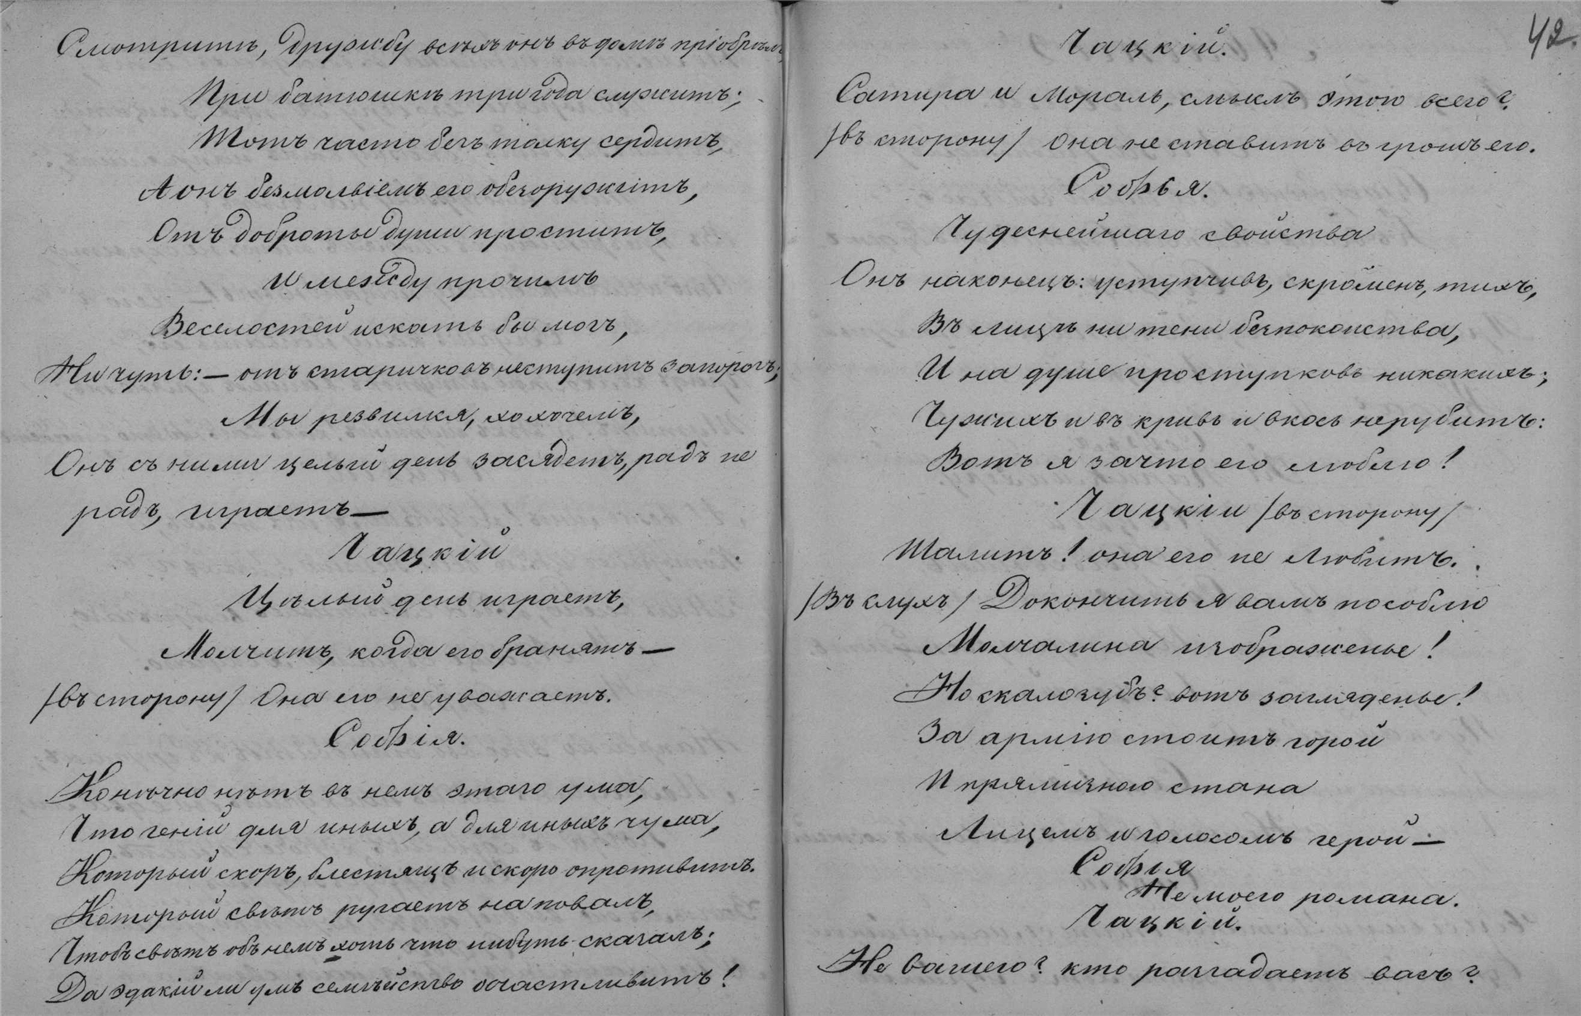 Смотрите, дружбу всѣхъ онъ въ домѣ пріобрѣлъ,
При батюшкѣ три года служитъ;
Тотъ часто безъ толку сердитъ,
А онъ безмолвіемъ его обезоружитъ,
Отъ доброты души проститъ,
И между прочимъ
Веселостей искать бы могъ,
Ни чуть: — отъ старичковъ неступитъ запорогъ;
Мы резвимся, хохочемъ,
Онъ съ ними целый день засядетъ, радъ не
радъ, играетъ —
Чацкій
Цѣлый день играетъ,
Молчитъ, когда его бранятъ —
/въ сторону/ Она его не уважаетъ.
Софія.
Конѣчно нѣтъ въ немъ этаго ума,
Что геній для иныхъ, а для иныхъ чума,
Который скоръ, блестящъ и скоро опротивитъ.
Которой свѣтъ ругаетъ наповалъ,
Чтобъ свѣтъ объ немъ хоть что нибуть сказалъ;
Да эдакій ли умъ семѣйство осчастливитъ!
42.
Чацкій.
Сатира и Мораль, смыслъ этого всего?
/въ сторону/ Она не ставитъ въ грошъ его.
Софья.
Чудеснейшаго свойства
Онъ наконецъ: уступчивъ, скроменъ, тихъ,
Въ лицѣ ни тени безпокойства,
И на душе проступковъ никакихъ;
Чужихъ и въ кривь и вкось нерубитъ:
Вотъ я зачто его люблю!
Чацкій /въ сторону/
Шалитъ! она его не Любитъ.
/Въ слухъ/ Докончить я вамъ пособлю
Молчалина изображенье!
Но скалозубъ? вотъ загляденье!
За армію стоитъ горой
И прямизною стана
Лицемъ и голосомъ герой —
Софія
Не моего романа.
Чацкій.
Не вашего? кто разгадаетъ васъ?